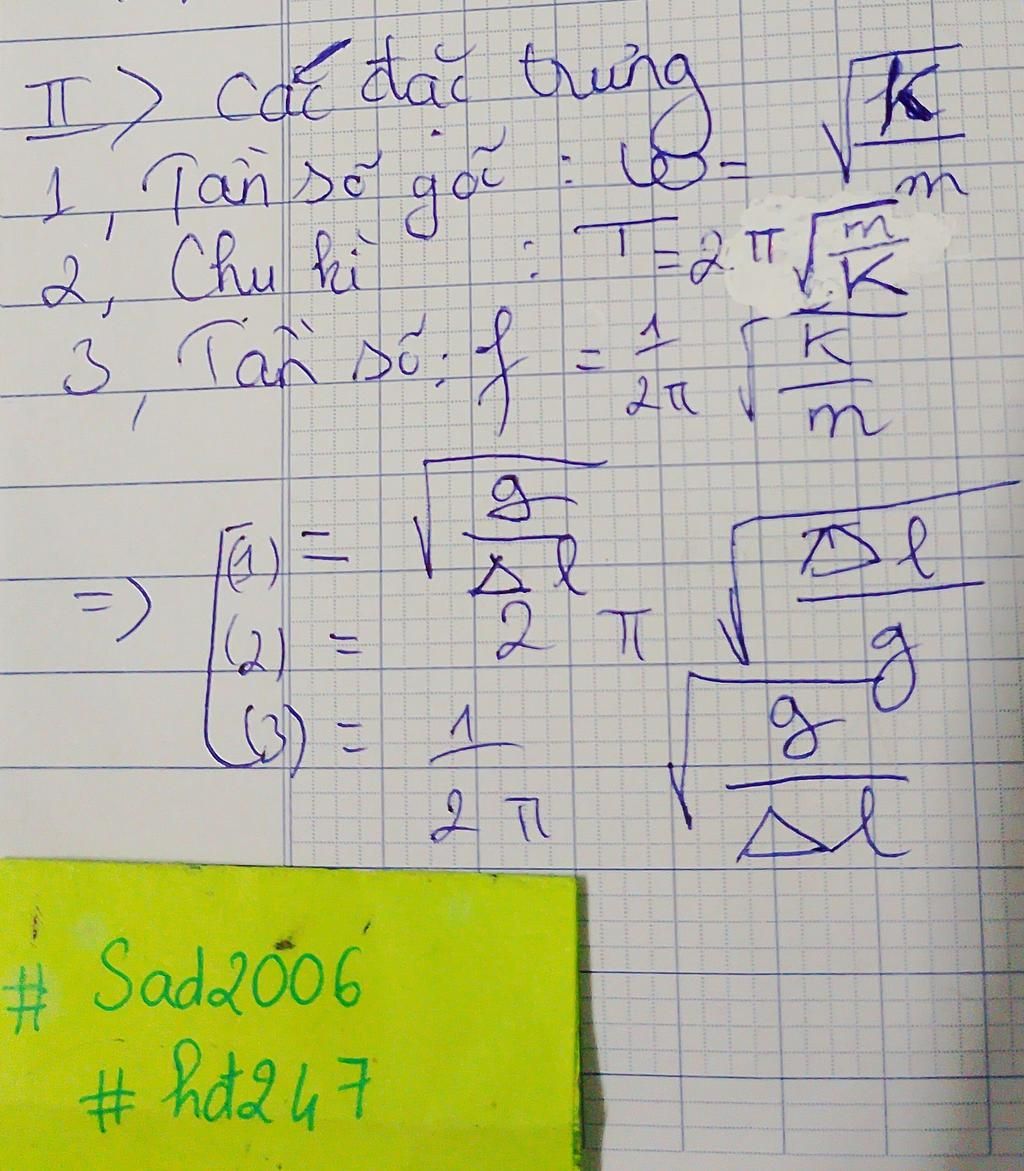 II> Các đặc trưng
1, Tần số góc : ω = √(K/m)
2, Chu kì : T = 2π√(m/K)
3, Tần số : f = 1/2π √(K/m)
=> [(1) = √(g/Δl)
(2) = 2π √(Δl/g)
(3) = 1/2π √(g/Δl)
# Sad2006
# hđ247